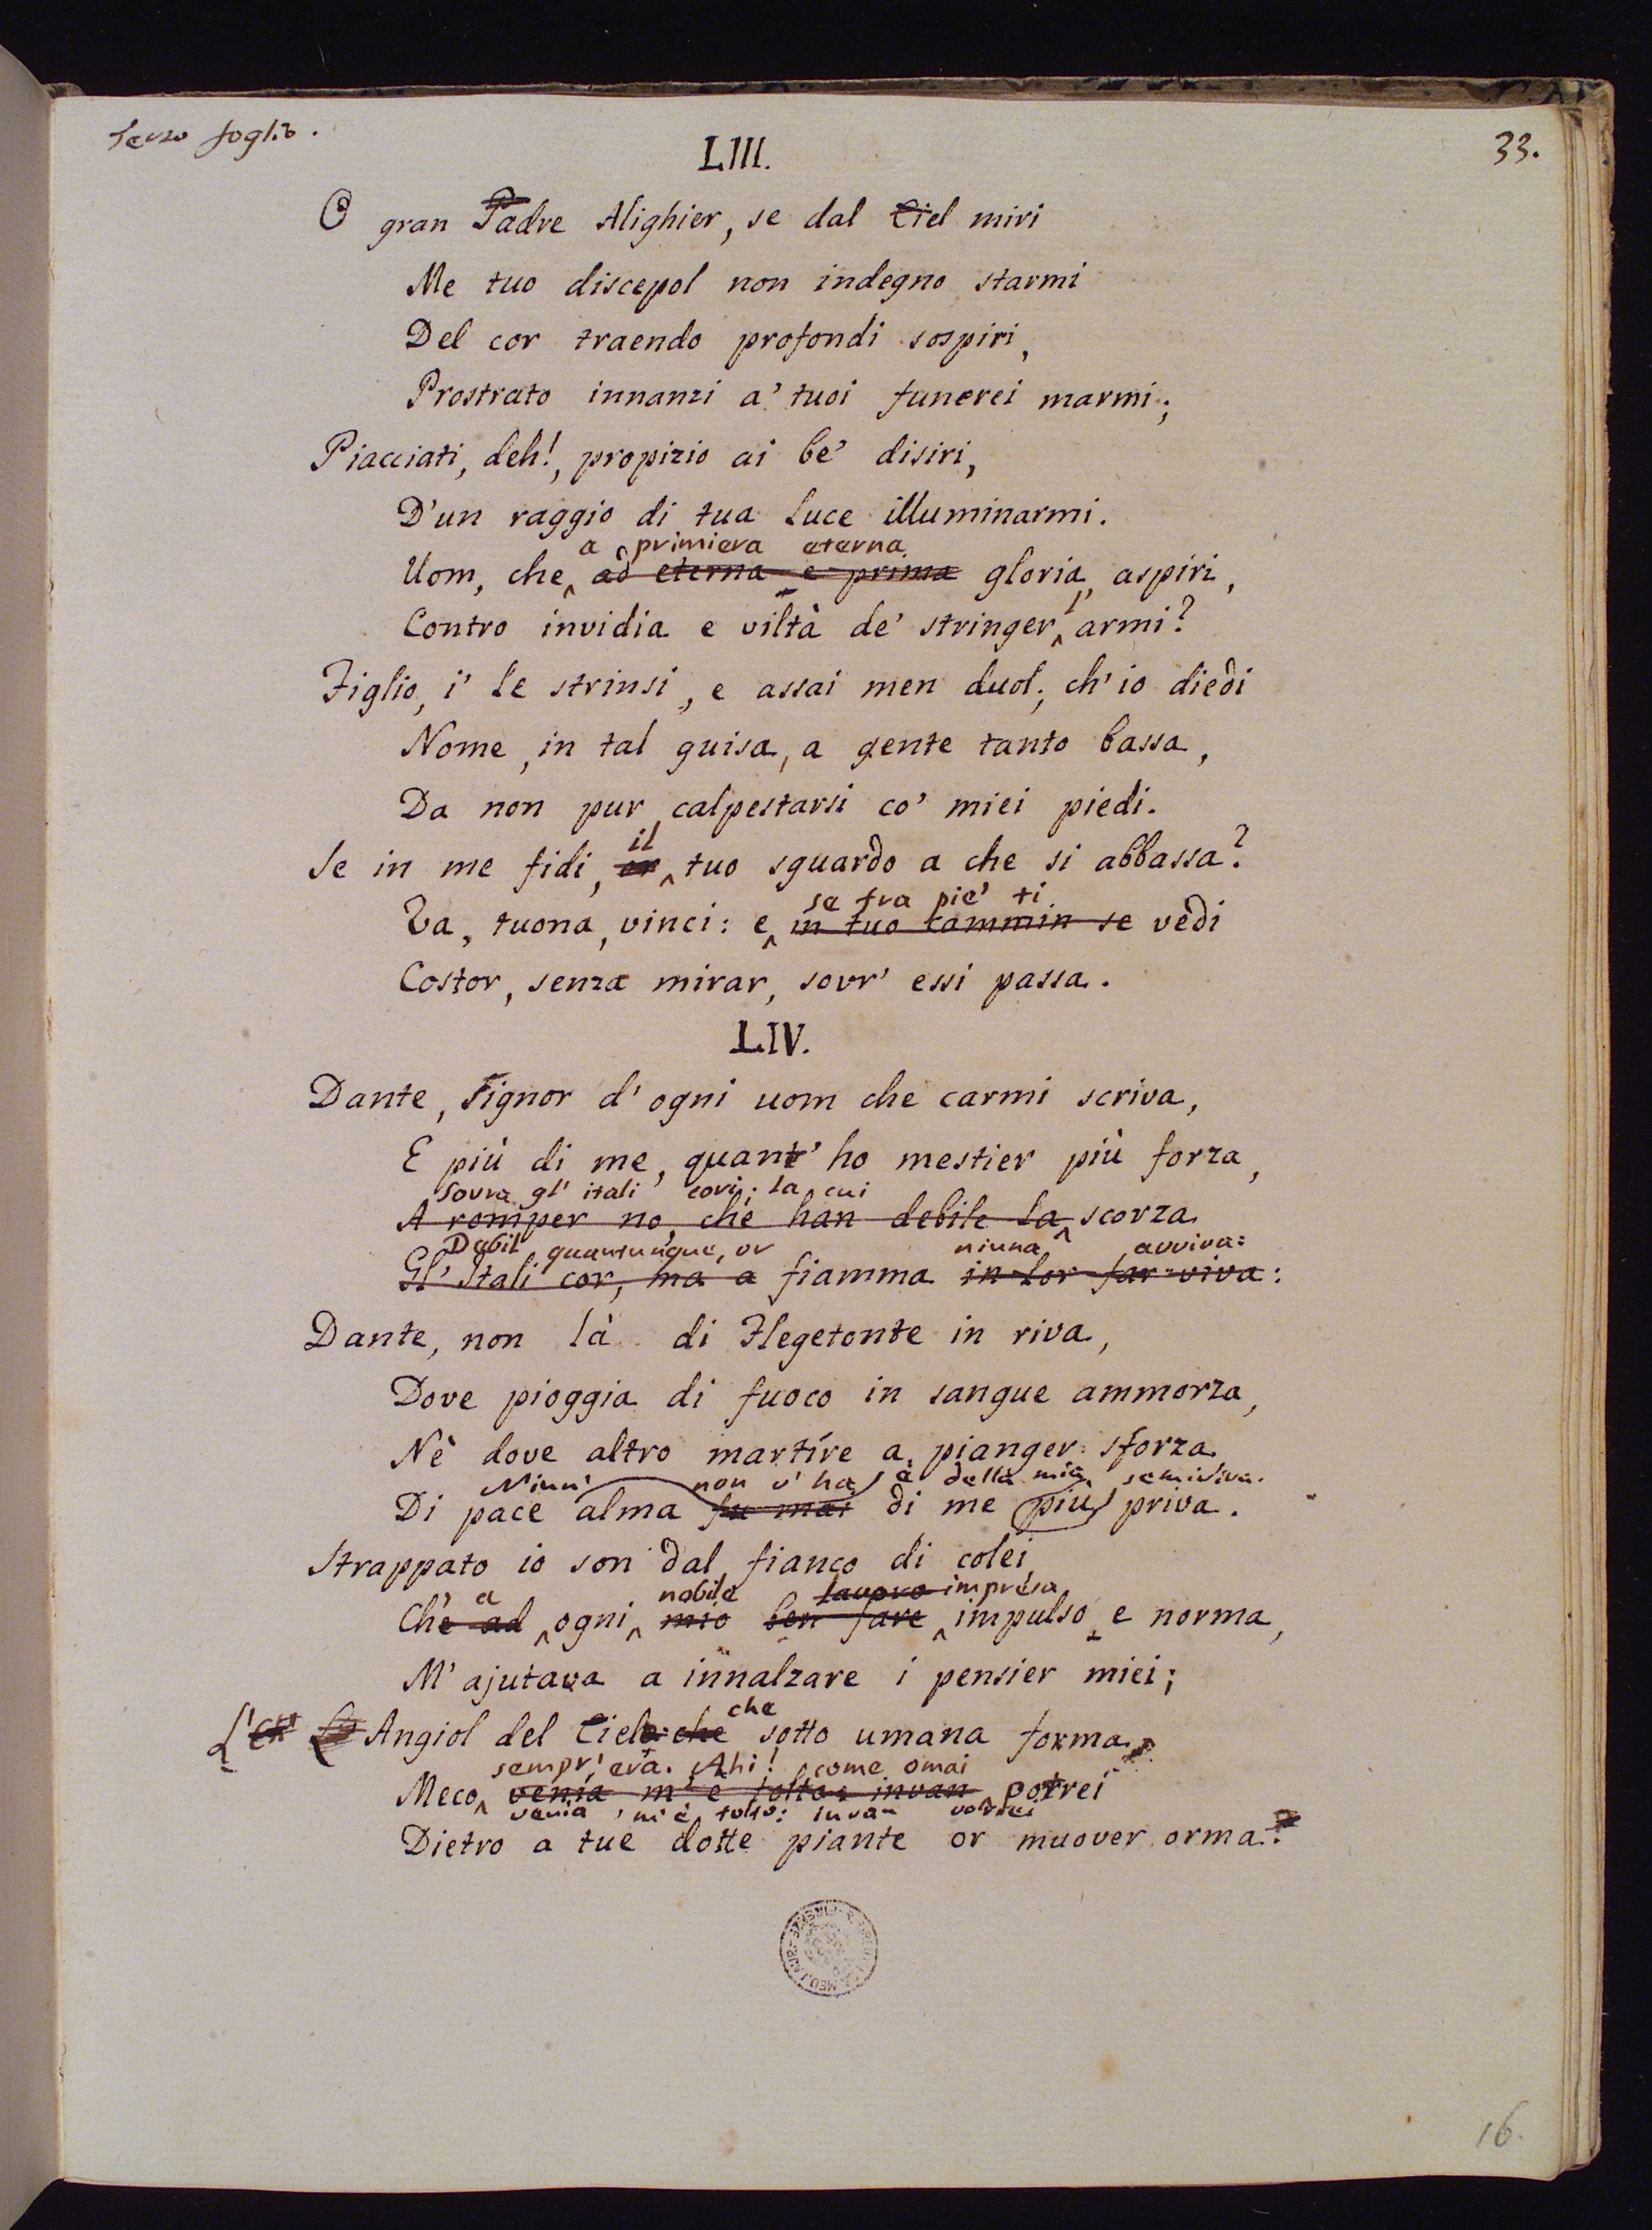 Terzo foglio.
33.
LIII.
O gran Padre Alighier, se dal Ciel miri
Me tuo discepol non indegno starmi
Del cor traendo profondi sospiri,
Prostrato innanzi a' tuoi funerei marmi;
Piacciati, deh!, propizio ai be' disiri,
D'un raggio di tua luce illuminarmi.
a primiera eterna
Uom, che ad eterna e prima gloria, aspiri,
Contro invidia e viltà de' stringer l' armi?
Figlio, i' le strinsi, e assai men duol; ch' io diedi
Nome, in tal guisa, a gente tanto bassa,
Da non pur calpestarsi co' miei piedi.
il
Se in me fidi, tuo sguardo a che si abbassa?
se fra pie' ti
Va, tuona, vinci: e in tuo cammin se vedi
Costor, senza mirar, sovr' essi passa.
LIV.
Dante, Signor d' ogni uom che carmi scriva,
E più di me, quant' ho mestier più forza,
Sovra gl' itali cori; la cui
A romper no, che han debile la scorza
Debil quantunque, or niuna avviva:
Gl' Itali cor, ma a fiamma in lor far viva:
Dante, non là di Flegetonte in riva,
Dove pioggia di fuoco in sangue ammorza,
Nè dove altro martíre a pianger sforza
Niun' non v' ha è della mia semiviva.
Di pace alma fu mai di me più priva.
Strappato io son dal fianco di colei
a nobile lavoro impresa
Chè ad ogni mio ben fare impulso e norma,
M' ajutava a innalzare i pensier miei;
che
L' Angiol del Cielo che sotto umana forma
sempr' era. Ahi! come omai
Meco venia m' è tolto: invan potrei
venia, m' è tolto: invan vorrei
Dietro a tue dotte piante or muover orma.
16.